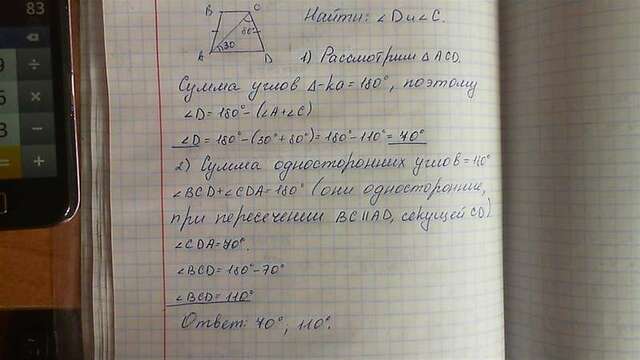 83
B C
80°
30
A D
Найти: ∠D и ∠C.
1) Рассмотрим △ACD.
Сумма углов △-ка = 180°, поэтому
∠D = 180° - (∠A + ∠C)
∠D = 180° - (30° + 80°) = 180° - 110° = 70°
2) Сумма односторонних углов = 180°
∠BCD + ∠CDA = 180° (они односторонние,
при пересечении BC || AD, секущей CD)
∠CDA = 70°.
∠BCD = 180° - 70°
∠BCD = 110°
Ответ: 70°, 110°.
9 ÷
6 ×
3 −
= +